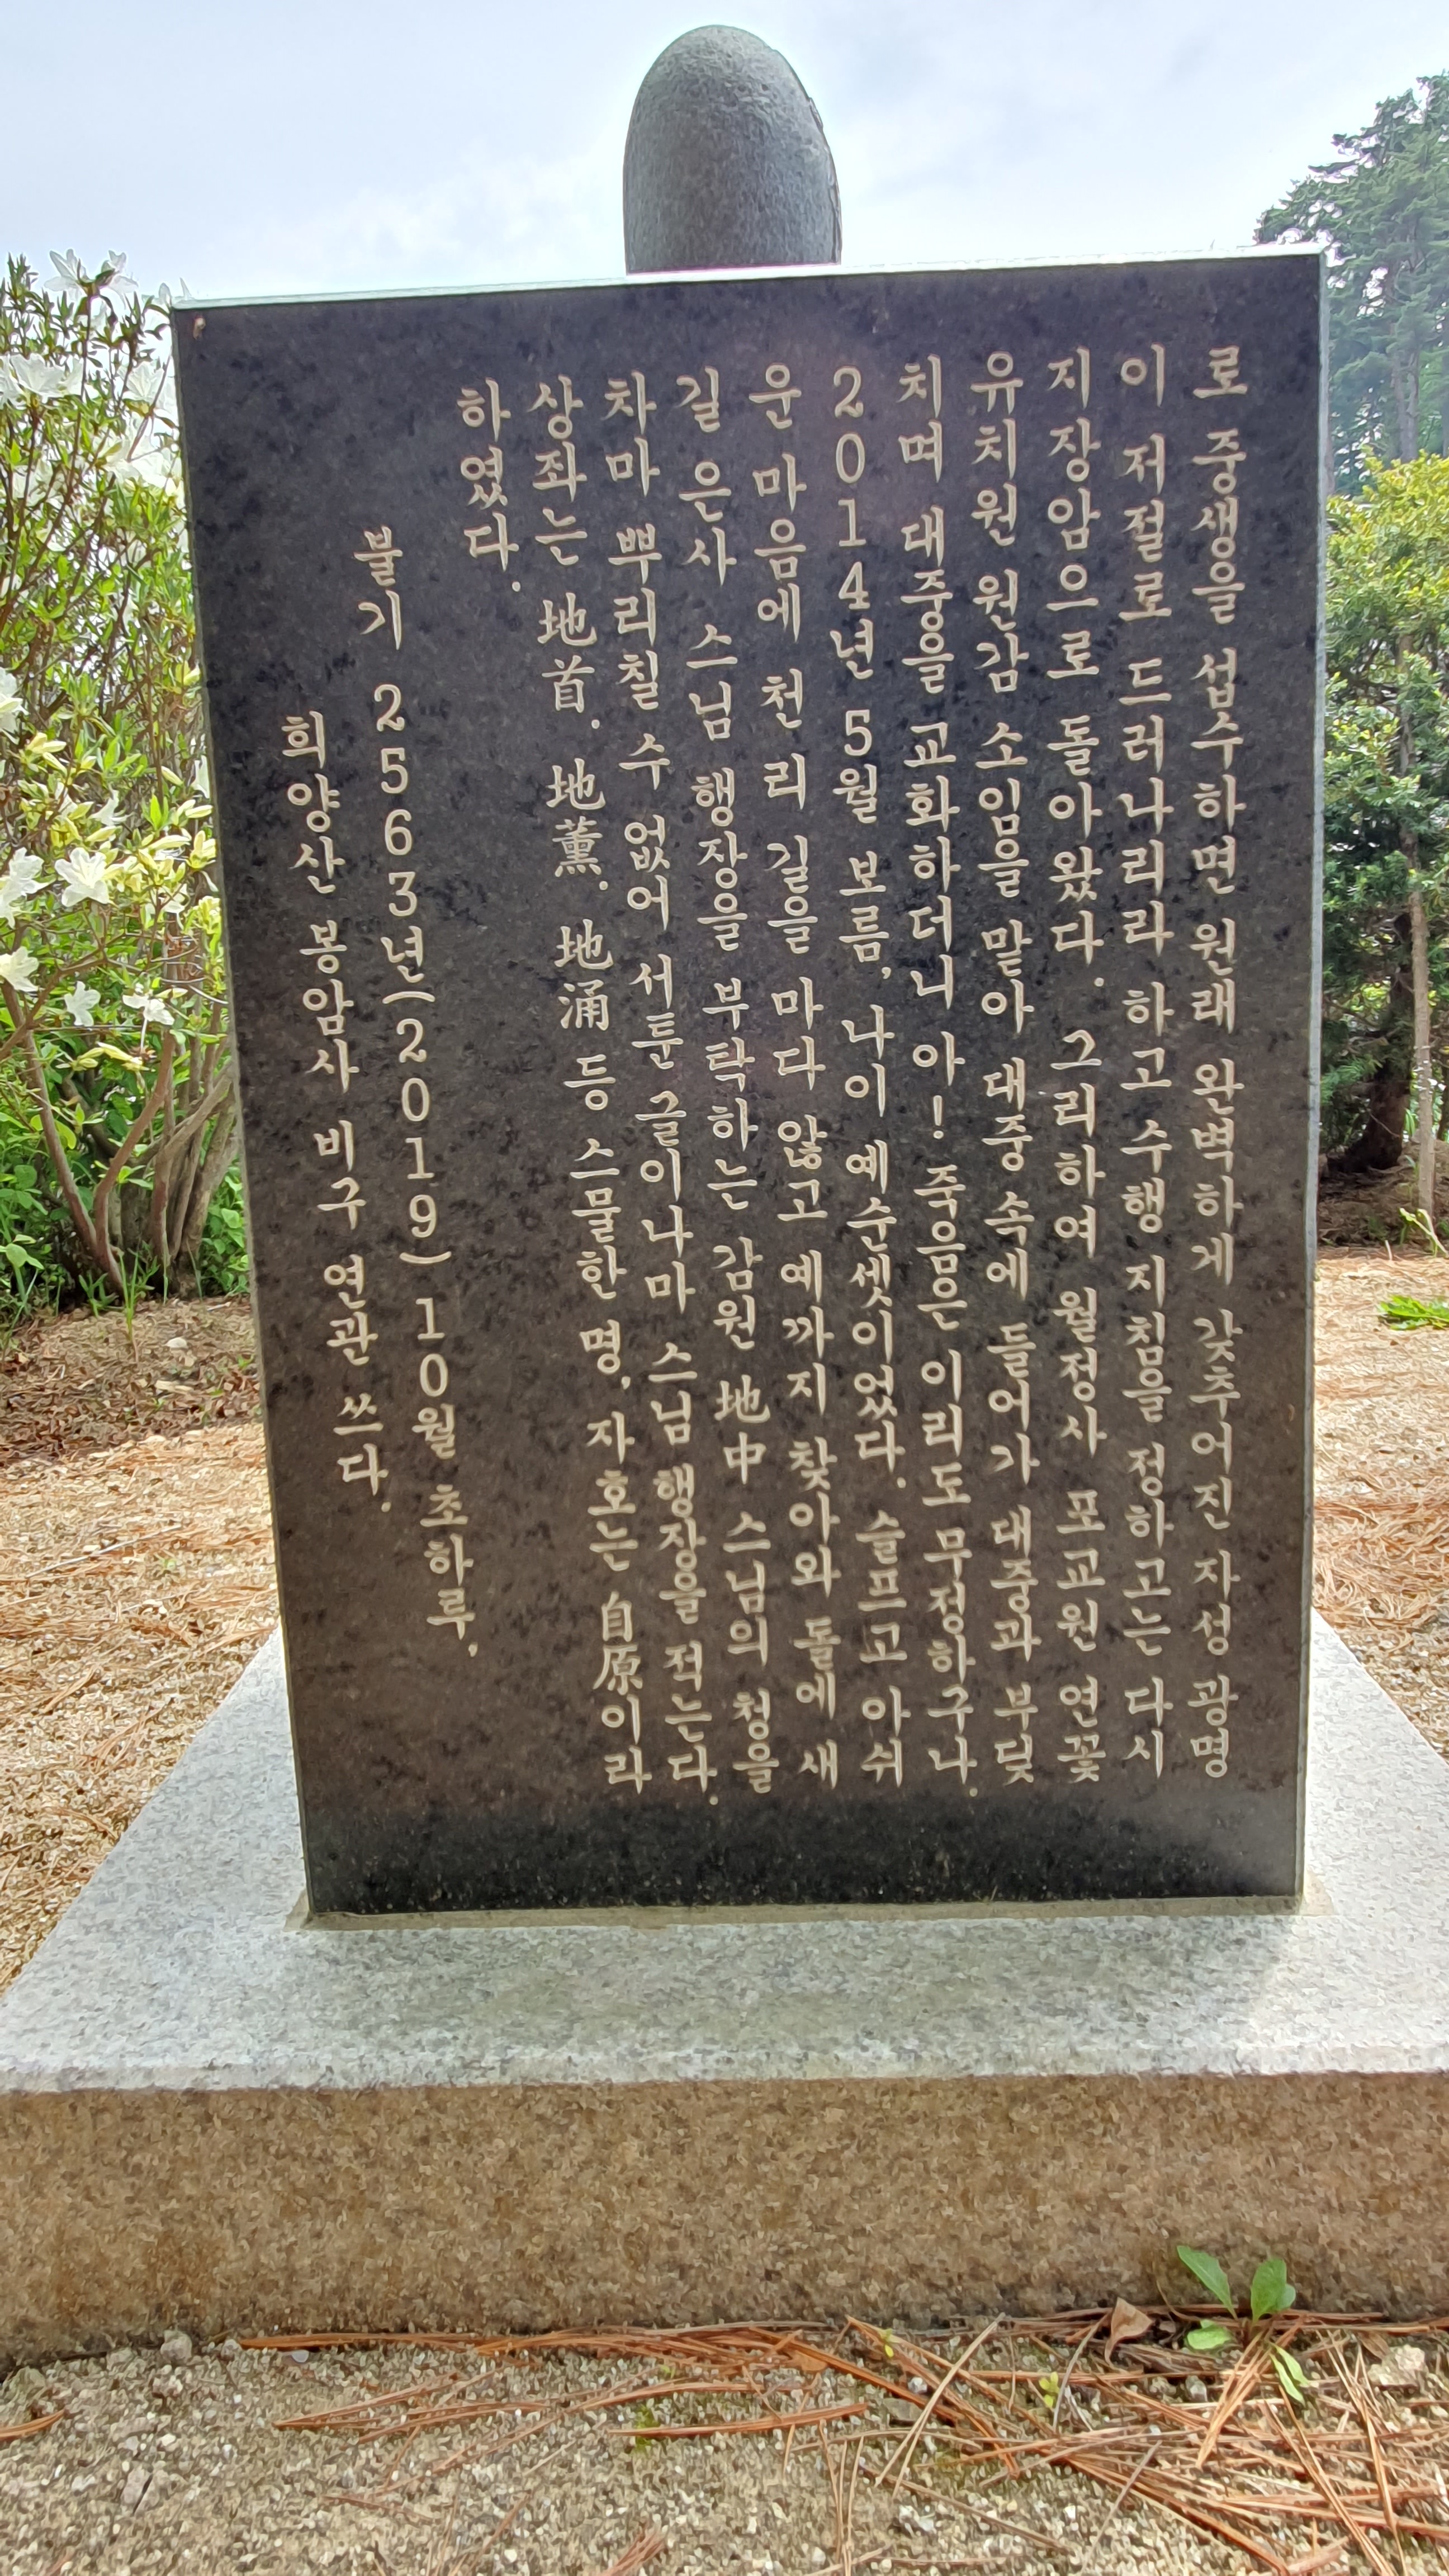 로 중생을 섭수하면 원래 완벽하게 갖추어진 자성 광명
이 저절로 드러나리라 하고 수행 지침을 정하고는 다시
지장암으로 돌아왔다. 그리하여 월정사 포교원 연꽃
유치원 원감 소임을 맡아 대중 속에 들어가 대중과 부딪
치며 대중을 교화하더니 아! 죽음은 이리도 무정하구나.
2014년 5월 보름, 나이 예순셋이었다. 슬프고 아쉬
운 마음에 천 리 길을 마다 않고 예까지 찾아와 돌에 새
길 은사 스님 행장을 부탁하는 감원 地中 스님의 청을
차마 뿌리칠 수 없어 서툰 글이나마 스님 행장을 적는다.
상좌는 地首. 地薰. 地涌 등 스물한 명, 자호는 自原이라
하였다.
불기 2563년(2019) 10월 초하루,
희양산 봉암사 비구 연관 쓰다.